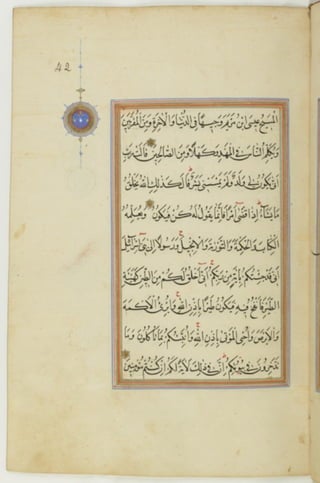 42
المسيح عيسى ابن مريم وجيها في الدنيا والآخرة ومن المقربين
ويكلم الناس في المهد وكهلا ومن الصالحين قالت رب
أنى يكون لي ولد ولم يمسسني بشر قال كذلك الله يخلق
ما يشاء إذا قضى أمرا فإنما يقول له كن فيكون ويعلمه
الكتاب والحكمة والتورية والإنجيل ورسولا إلى بني إسرائيل
أني قد جئتكم بآية من ربكم أني أخلق لكم من الطين كهيئة
الطير فأنفخ فيه فيكون طيرا بإذن الله وأبرئ الأكمه
والأبرص وأحي الموتى بإذن الله وأنبئكم بما تأكلون وما
تدخرون في بيوتكم إن في ذلك لآية لكم إن كنتم مؤمنين